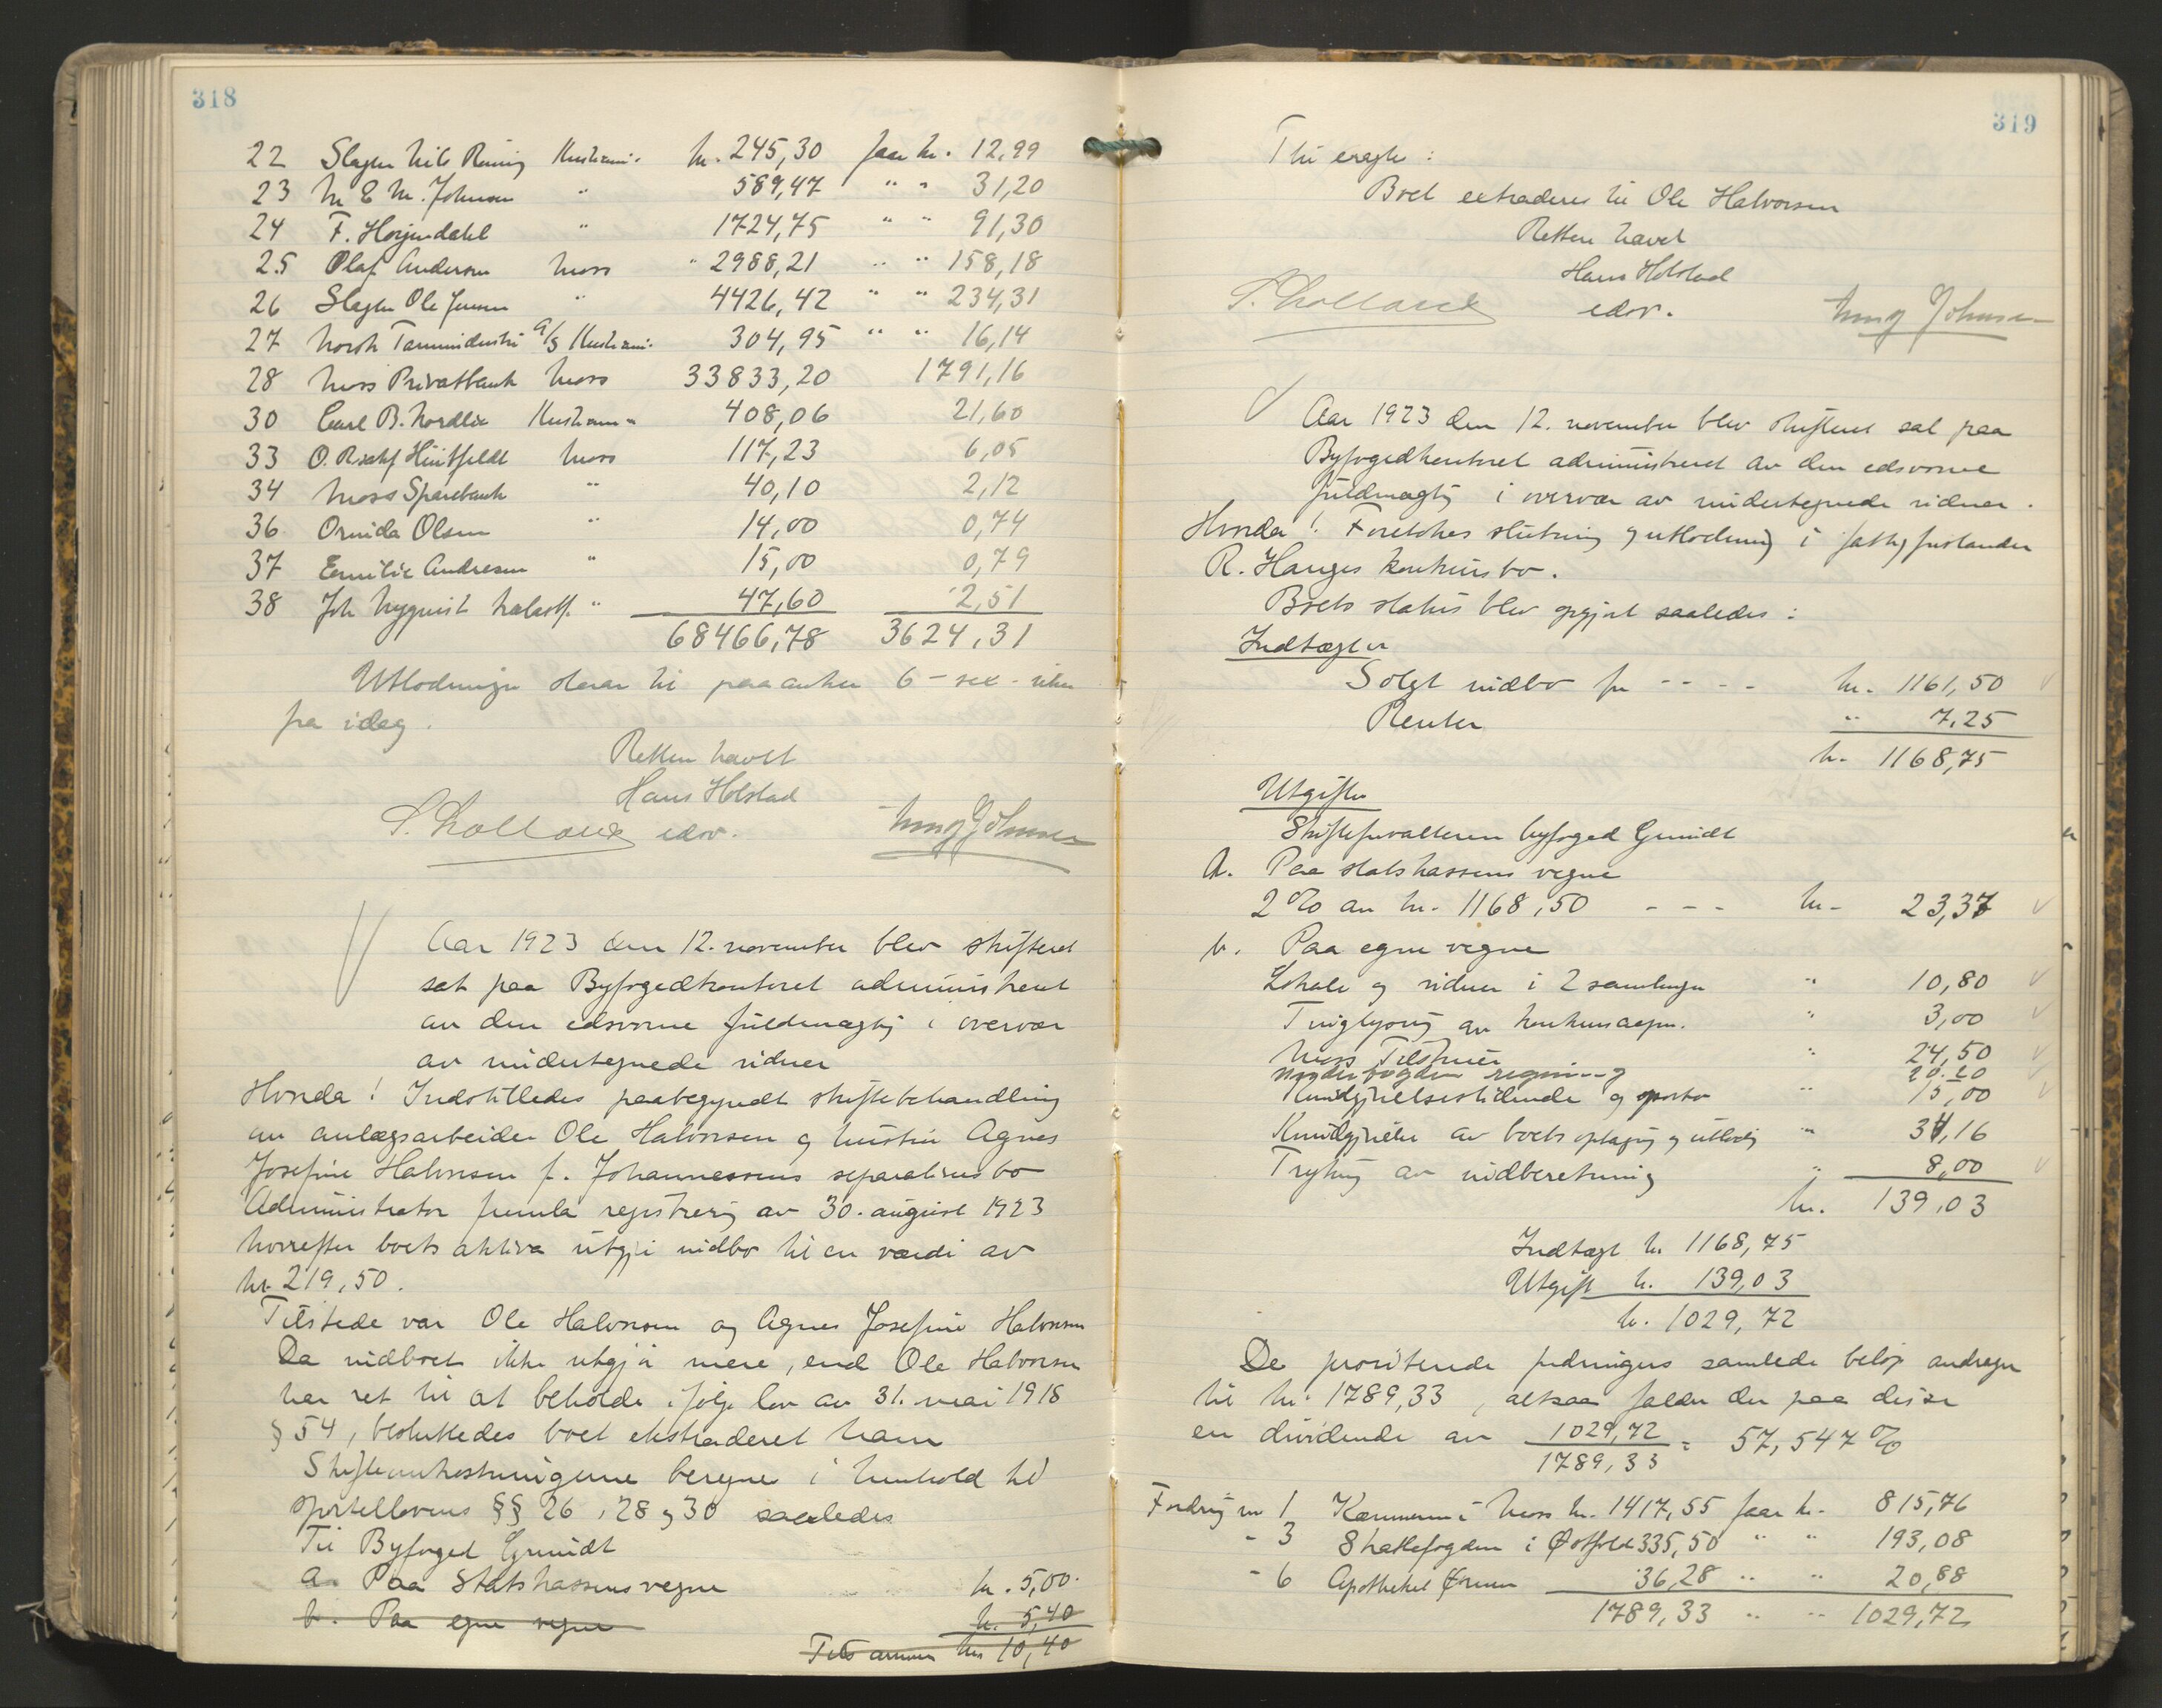 318
22 Slagter Nils Røning Kristiania. kr. 245,30 faar kr. 12,99
23 M E M. Johnsen " 589,47 " " 31,20
24 F. Horjendahl " 1724,75 " " 91,30
25 Olaf Andersen Moss " 2988,21 " " 158,18
26 Slagter Ole Jensen " 4426,42 " " 234,31
27 Norsk Tarmindustri A/S Kristiania. 304,95 " " 16,14
28 Moss Privatbank Moss 33833,20 1791,16
30 Carl B. Nordlie Kristiania 408,06 21,60
33 O. Huitfeldt Moss 117,23 6,05
34 Moss Sparebank " 40,10 2,12
36 Ornida Olsen " 14,00 0,74
37 Emilie Andresen " 15,00 0,79
38 Joh Nyquist " 47,60 2,51
68466,78 3624,31
Utlodningen staar til paaanke 6 - sex - uker
fra idag.
Retten hævet
Hans Holstad
edsv.
Aar 1923 den 12. november blev skifteret
sat paa Byfogedkontoret administreret
av den edsvorne fuldmægtig i overvær
av undertegnede vidner
Hvorda! Indstilledes paabegyndt skiftebehandling
av anlægsarbeider Ole Halvorsen og hustru Agnes
Josefine Halvorsen f. Johannessens separationsbo
Administrator fremla registrering av 30. august 1923
hvorefter boets aktiva utgjør indbo til en værdi av
kr. 219,50.
Tilstede var Ole Halvorsen og Agnes Josefine Halvorsen
Da indboet ikke utgjør mere, end Ole Halvorsen
har ret til at beholde ifølge lov av 31. mai 1918
§ 54, besluttedes boet ekstraderet ham
Skifteomkostningerne beregnes i henhold til
sportellovens §§ 26, 28 og 30 saaledes
Til Byfoged Grundt
a. Paa Statskassens vegne kr. 5,00.
b. Paa egne vegne kr. 5,40
Tilsammen kr. 10,40
319
Thi eragtes:
Boet extraderes til Ole Halvorsen
Retten hævet
Hans Holstad
edsv.
Aar 1923 den 12. november blev skifteret sat paa
Byfogedkontoret administreret av den edsvorne
fuldmægtig i overvær av undertegnede vidner.
Hvorda! Foretokes slutning og utlodning i
R. Hauges konkursbo.
Boets status blev opgjort saaledes:
Indtægter
Solgt indbo for - - - - kr. 1161,50
Renter " 7,25
kr. 1168,75
Utgifter
Skifteforvalteren byfoged Grundt
a. Paa statskassens vegne
2% av kr. 1168,50 - - - kr. 23,37
b. Paa egne vegne
Lokale og vidner i 2 samlinger " 10,80
Tinglysning av konkursaapn. " 3,00
Moss Tilskuer " 24,50
regning 20.20
Kundgjørelsestidende og porto " 15,00
Kundgjørelse av boets optagning og utlodng " 34,16
Trykning av indberetning " 8,00
kr. 139,03
Indtægt kr 1168,75
Utgift kr. 139,03
kr. 1029,72
De prioriterede fordringers samlede beløp andrager
til kr. 1789,33, altsaa falder der paa disse
en dividende av 1029,72 / 1789,33 = 57,547%
Fordring nr 1 Kæmneren i Moss kr. 1417,55 faar kr. 815,76
" 3 Skattefogden i Østfold 335,50 " " 193,08
" 6 Apotheket Ørnen 36,28 " " 20,88
1789,33 " " 1029,72